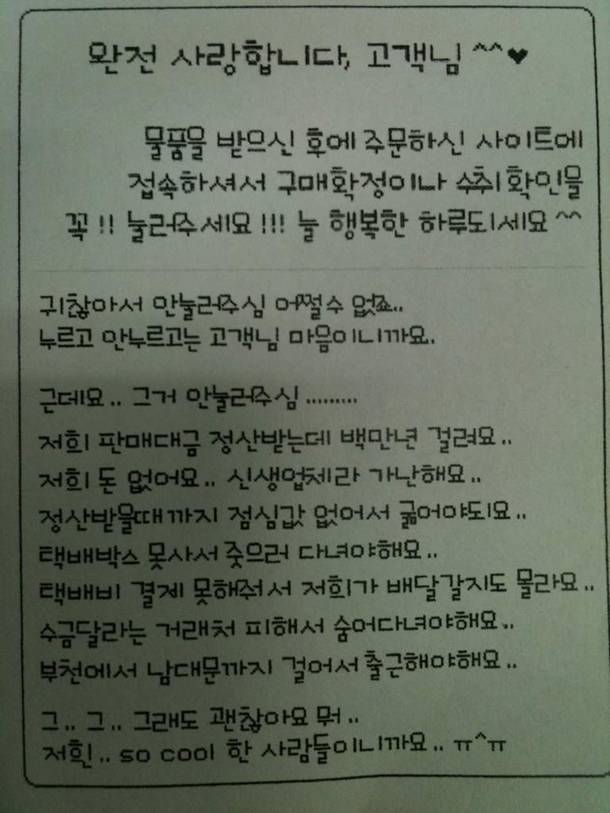 완전 사랑합니다, 고객님 ^^♥
물품을 받으신 후에 주문하신 사이트에
접속하셔서 구매확정이나 수취확인을
꼭 !! 눌러주세요 !!! 늘 행복한 하루되세요 ^^
귀찮아서 안눌러주심 어쩔수 없죠..
누르고 안누르고는 고객님 마음이니까요.
근데요.. 그거 안눌러주심.........
저희 판매대금 정산받는데 백만년 걸려요..
저희 돈 없어요.. 신생업체라 가난해요..
정산받을때까지 점심값 없어서 굶어야되요..
택배박스 못사서 줏으러 다녀야해요..
택배비 결제 못해줘서 저희가 배달갈지도 몰라요..
수금달라는 거래처 피해서 숨어다녀야해요..
부천에서 남대문까지 걸어서 출근해야해요..
그.. 그.. 그래도 괜찮아요 뭐..
저흰.. so cool 한 사람들이니까요.. ㅠ^ㅠ